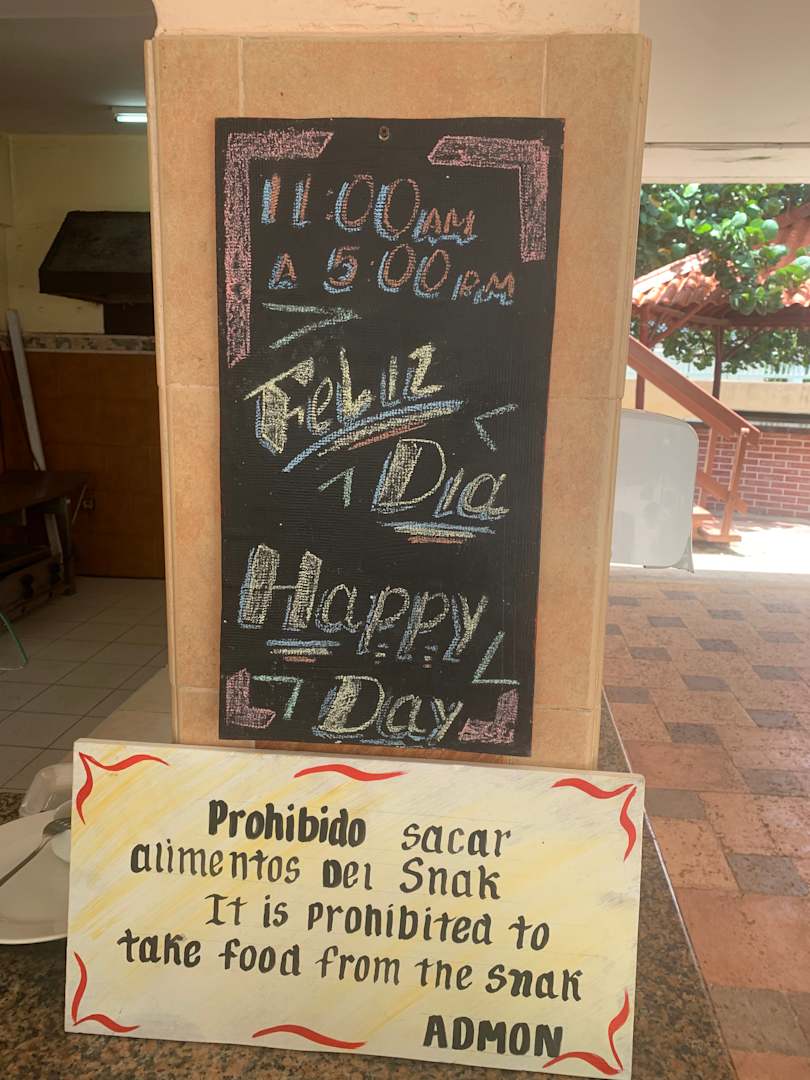 11:00 AM
A 5:00 PM
Feliz
Dia
Happy
Day
Prohibido sacar
alimentos Del Snak
It is prohibited to
take food from the snak
ADMON